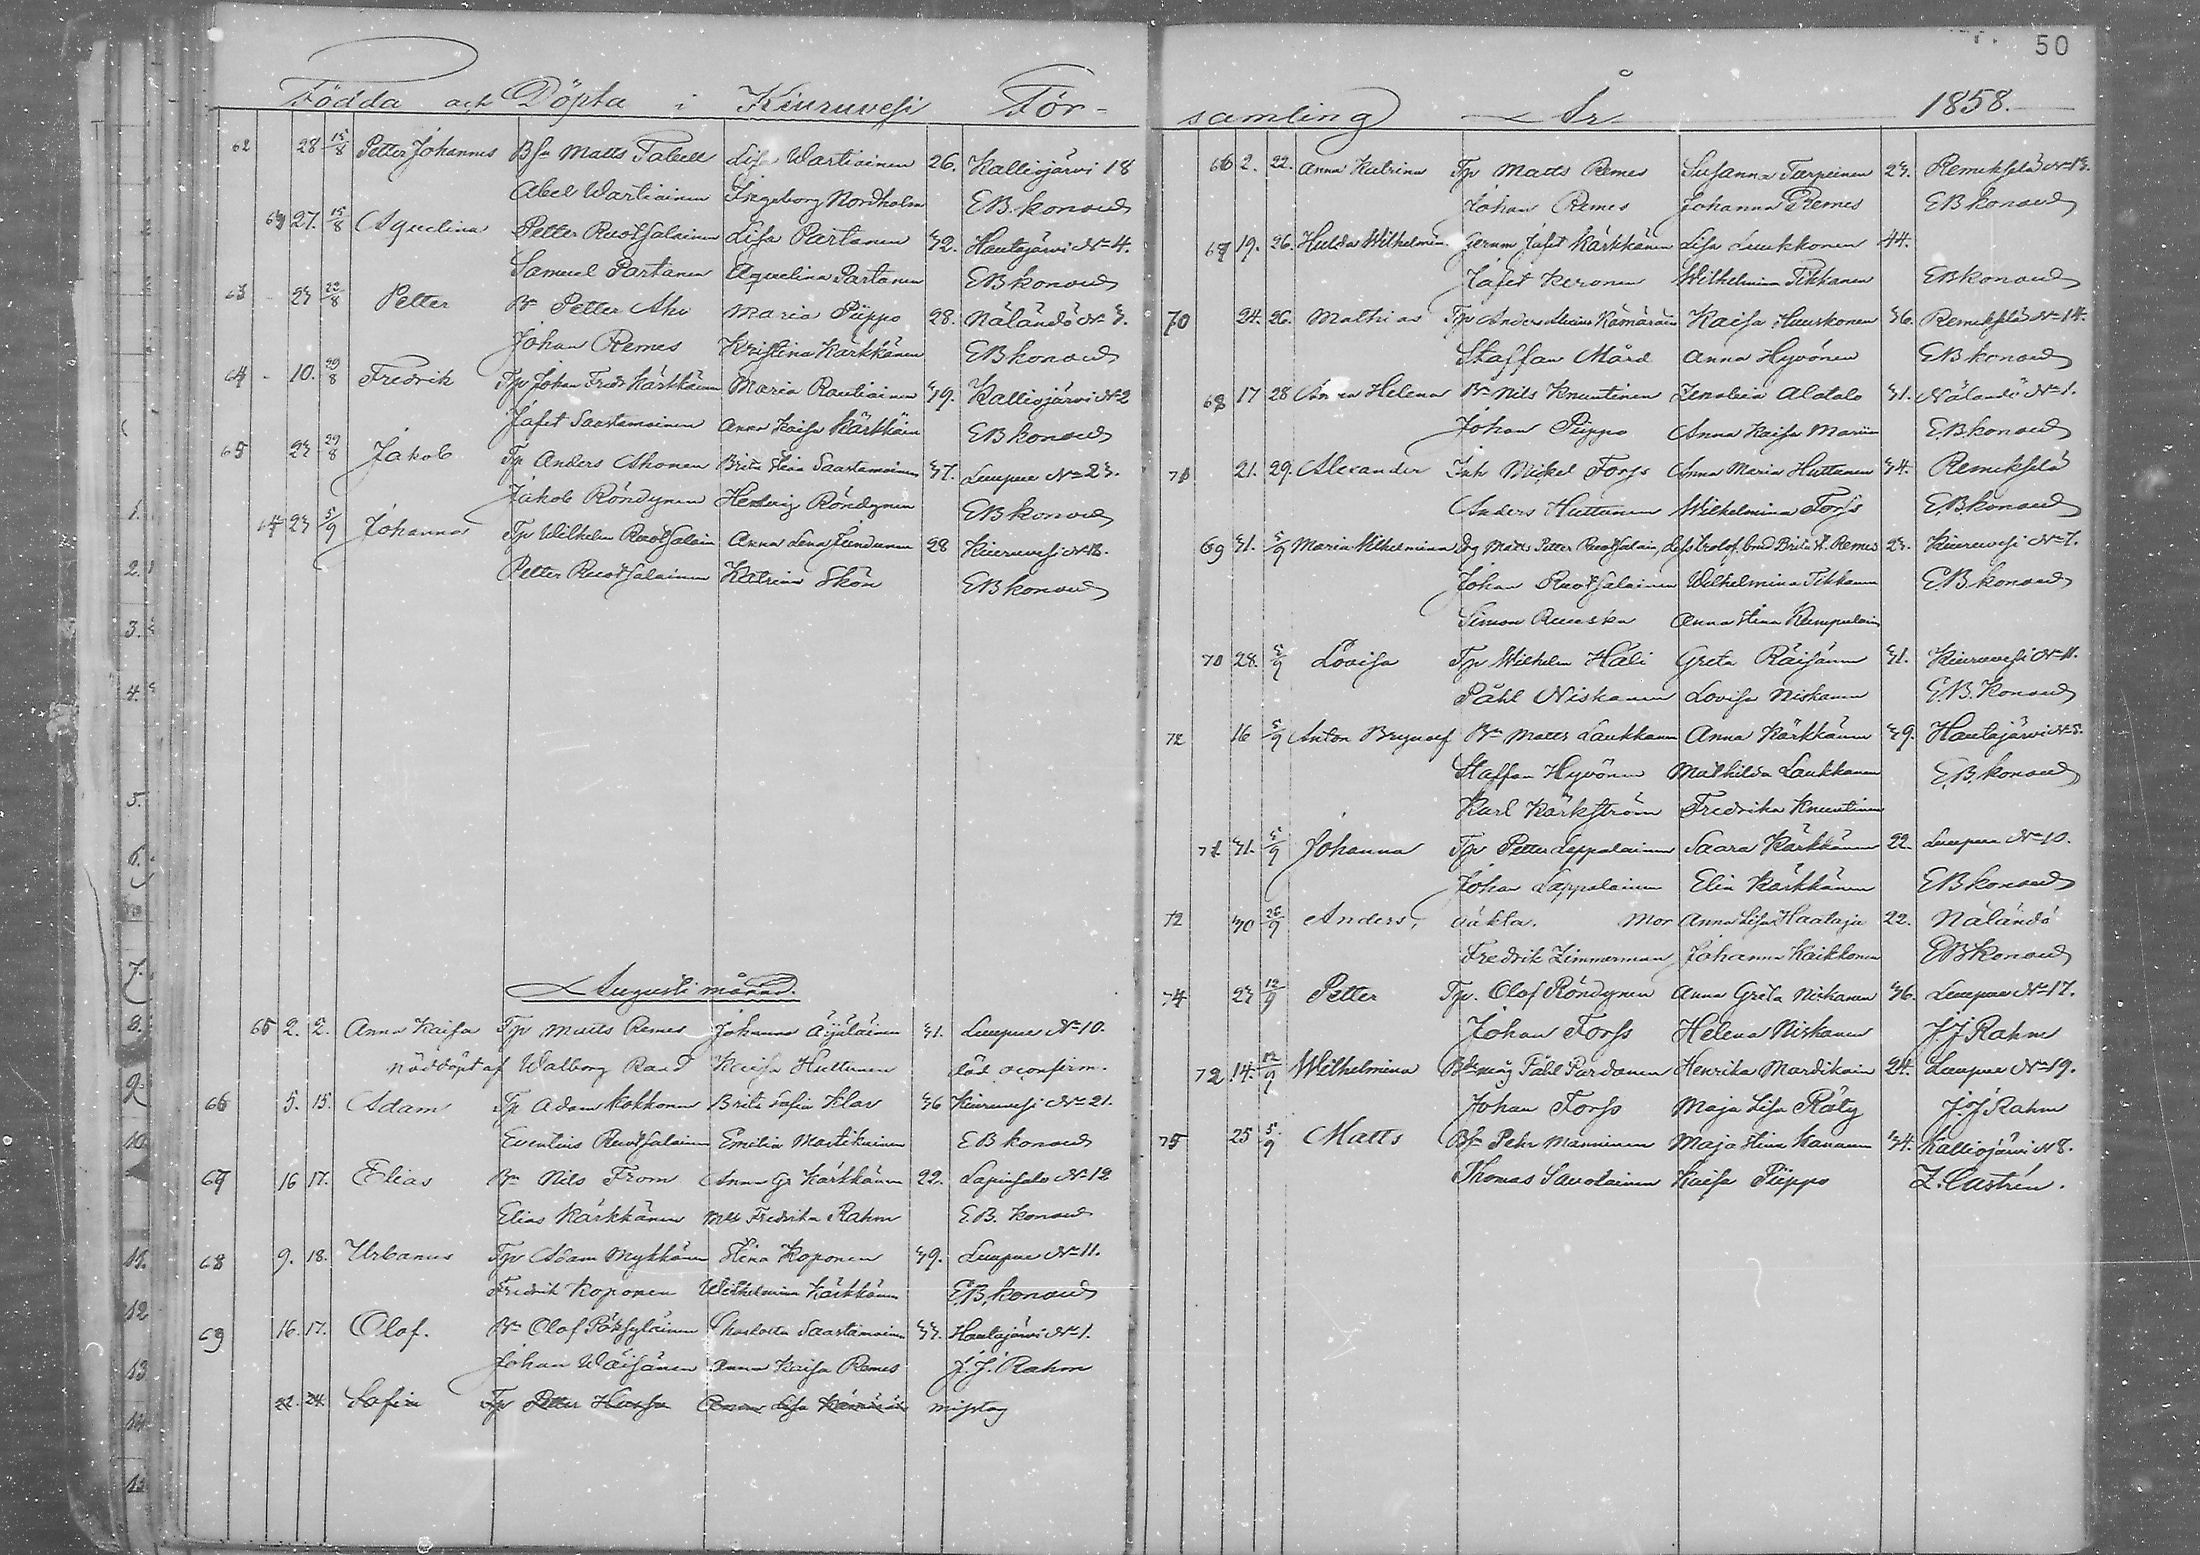 50
Födda och Döpta i Kiuruvesi För-
62 28 15/8 Petter Johannes Bss Matts Lisa Wartiainen 26. Kallisjärvi 18
Abel Wartiainen Ingeborg Nordholm EBkonoud
63 27. 15/8 Aquelina Petter Ruotsalainen Lisa Partanen 32. Hautajärvi No 4.
Samuel Partanen Aquelina Partanen EBkonoud
63 - 23 22/8 Petter Bn Petter Aho Maria Piippo 28. Näländö No 3.
Johan Remes Kristina Kärkkänen EBkonoud
64 - 10. 29/8 Fredrik Tp Johan Fredr Kärkkäinen Maria Rautiainen 39. Kallisjärvi No 2
Jafet Saastamoinen Anna Kaisa Kärkkäin EBkonoud
65 23 29/8 Jakob Tp Anders Ahonen Brita Stina Saastamoinen 37. Luupue No 23.
Jakob Röndynen Hedvig Röndynen EBkonoud
64 23 5/9 Johanna Tp Wilhelm Ruotsalain Anna Lena 28 Kiuruvesi No 18.
Petter Ruotsalainen Katrina Skön EBkonoud
Augusti månad.
65 2. 2. Anna Kaisa Tp Matts Remes Johanna Äijäläinen 31. Luupue No 10.
nöddöpt af Walborg Rand Kaisa Huttunen död oconfirm.
66 5. 15. Adam Tp Adam Kokkonen Brita Sofia Klav 36 Kiuruvesi No 21.
Eventius Ruotsalainen Emilia Martikainen EBkonoud
67 16 17. Elias Bn Nils From Anna Gr Kärkkänen 22. Lapinsalo No 12
Elias Kärkkänen Mlle Fredrika Rahm E.B. Konoud
68 9. 18. Urbanus Tp Adam Mykkänen Stina Koponen 39. Luupue No 11.
Fredrik Koponen Wilhelmina Kärkkänen E.B.konoud
69 16. 17. Olof. Bn Olof Pöksyläinen Charlotta Saastamoinen 33. Hautajärvi No 1.
Johan Wäisänen Anna Kaisa Remes J.J. Rahm
22. 24. Sofia Tp Petter Lisa misstag
samling År 1858.
66 2. 22. Anna Katrina Tp Matts Remes Susanna Tarpeinen 23. Remeksela No 13.
Johan Remes Johanna Remes EBkonoud
67 19. 26. Hulda Wilhelmin. Jafet Kärkkänen Lisa Luukkonen 44.
Jafet Keronen Wilhelmina Tikkanen EBkonoud
70 24. 26. Mathias Tp Anders Kämäräin Kaisa Huuskonen 36. Remeksela No 14.
Staffan Mård Anna Hyvönen EBkonoud
68 17 28 Anna Helena Bn Nils Knuutinen Alatalo 31. Nälandö No 1.
Johan Piippo Anna Kaisa EBkonoud
71 21. 29. Alexander Inh Mickel Forss Anna Maria Huttunen 34. Remekselä
Anders Huttunen Wilhelmina Forss E.Bkonoud
69 31. 5/9 Maria Wilhelmina Dg Matts Petter Ruotsalain Brita St. Remes 23. Kiuruvesi No 7.
Johan Ruotsalainen Wilhelmina Tikkanen E.Bkonoud
Simon Ruuska Anna Stina Rumpulain
70 28. 5/9 Lovisa Tp Wilhelm Häli Greta Räisänen 31. Kiuruvesi No 11.
Påhl Niskanen Lovisa Niskanen E.B. Konoud
72 16 5/9 Anton Brynolf Bn Matts Laukkanen Anna Kärkkänen 39. Hautajärvi No 5.
Staffan Hyvönen Mathilda Laukkanen E.B. konoud
Karl Kärkström Fredrika Knuutinen
71 31. 5/9 Johanna Tp Petter Leppalainen Saara Kärkkänen 22. Luupue No 10.
Johan Lappalainen Elin Kärkkänen EBkonoud
72 30 26/9 Anders, oäkta. Mor Anna Lisa Haataja 22. Näländö
Fredrik Zimmerman Johanna Kaikkonen EBKonoud
74 23 12/9 Petter Tp. Olof Röndynen Anna Greta Niskanen 36. Luupue No 17.
Johan Forss Helena Niskanen J.J Rahm
72 14. 12/9 Wilhelmina Påhl Pardanen Henrika Mardikain 24. Luupue No 19.
Johan Forss Maja Lisa Räty J.J Rahm
75 25 5/9 Matts Bn Pehr Manninen Maja Stina Kananen 34. Kalliojärvi No 8.
Thomas Savolainen Kaisa Piippo Z. Castrén.